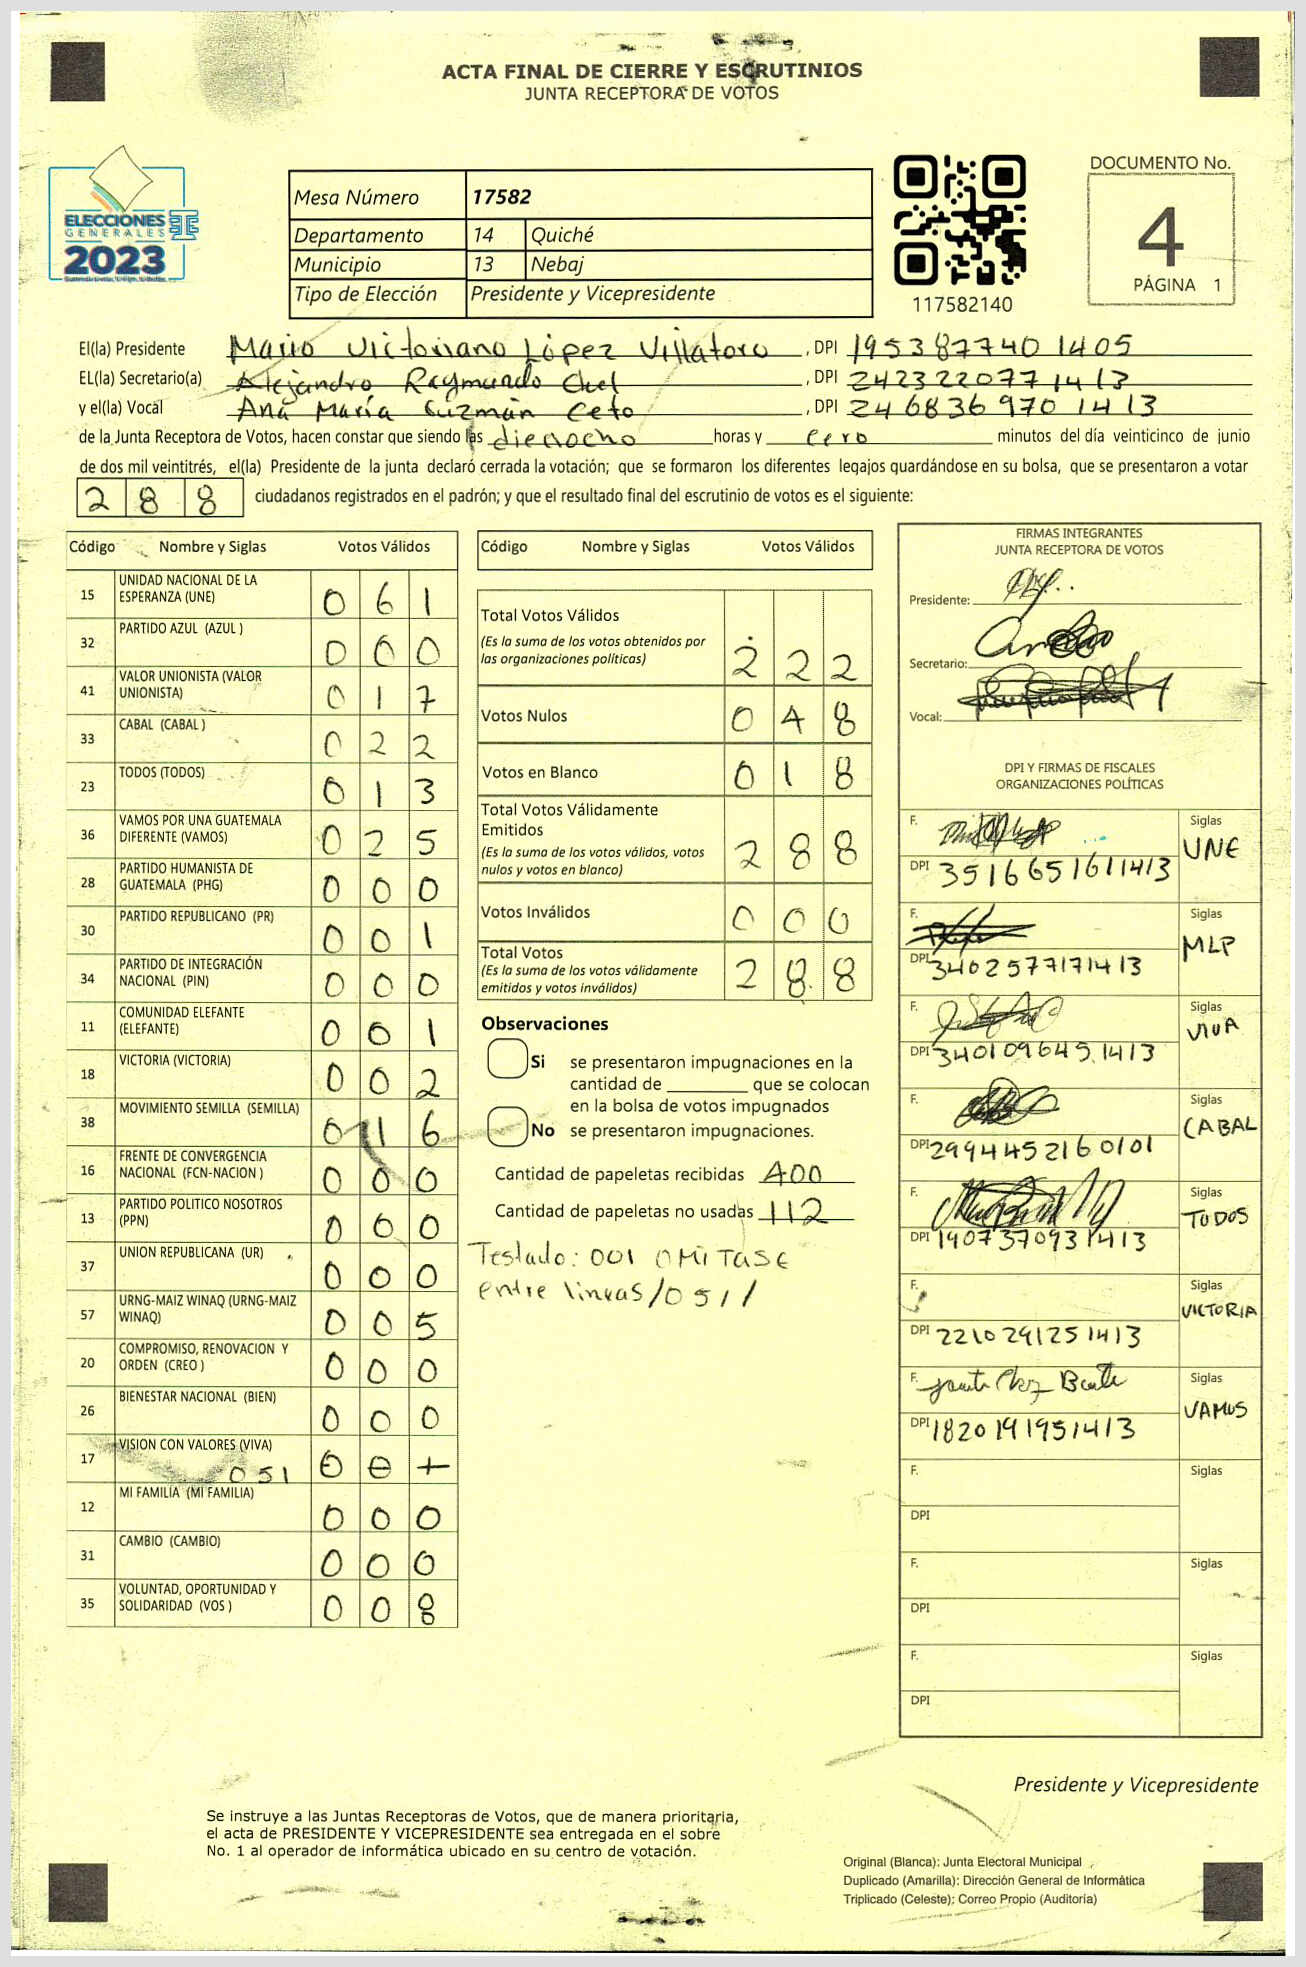 ACTA FINAL DE CIERRE Y ESCRUTINIOS
JUNTA RECEPTORA DE VOTOS
ELECCIONES
GENERALES
2023
Mesa Número 17582
Departamento 14 Quiché
Municipio 13 Nebaj
Tipo de Elección Presidente y Vicepresidente
117582140
DOCUMENTO No.
4
PÁGINA 1
El(la) Presidente Mario Victoriano López Villatoro , DPI 1953877401405
EL(la) Secretario(a) Alejandro Raymundo Chel , DPI 2423220771413
y el(la) Vocal Ana María Guzmán Ceto , DPI 2468369701413
de la Junta Receptora de Votos, hacen constar que siendo las dieciocho horas y cero minutos del día veinticinco de junio
de dos mil veintitrés, el(la) Presidente de la junta declaró cerrada la votación; que se formaron los diferentes legajos guardándose en su bolsa, que se presentaron a votar
288 ciudadanos registrados en el padrón; y que el resultado final del escrutinio de votos es el siguiente:
Código Nombre y Siglas Votos Válidos
15 UNIDAD NACIONAL DE LA ESPERANZA (UNE) 061
32 PARTIDO AZUL (AZUL ) 000
41 VALOR UNIONISTA (VALOR UNIONISTA) 017
33 CABAL (CABAL ) 022
23 TODOS (TODOS) 013
36 VAMOS POR UNA GUATEMALA DIFERENTE (VAMOS) 025
28 PARTIDO HUMANISTA DE GUATEMALA (PHG) 000
30 PARTIDO REPUBLICANO (PR) 001
34 PARTIDO DE INTEGRACIÓN NACIONAL (PIN) 000
11 COMUNIDAD ELEFANTE (ELEFANTE) 001
18 VICTORIA (VICTORIA) 002
38 MOVIMIENTO SEMILLA (SEMILLA) 016
16 FRENTE DE CONVERGENCIA NACIONAL (FCN-NACION ) 000
13 PARTIDO POLITICO NOSOTROS (PPN) 000
37 UNION REPUBLICANA (UR) 000
57 URNG-MAIZ WINAQ (URNG-MAIZ WINAQ) 005
20 COMPROMISO, RENOVACION Y ORDEN (CREO ) 000
26 BIENESTAR NACIONAL (BIEN) 000
17 VISION CON VALORES (VIVA) 051 001
12 MI FAMILIA (MI FAMILIA) 000
31 CAMBIO (CAMBIO) 000
35 VOLUNTAD, OPORTUNIDAD Y SOLIDARIDAD (VOS ) 008
Código Nombre y Siglas Votos Válidos
Total Votos Válidos
(Es la suma de los votos obtenidos por
las organizaciones políticas) 222
Votos Nulos 048
Votos en Blanco 018
Total Votos Válidamente
Emitidos
(Es la suma de los votos válidos, votos
nulos y votos en blanco) 288
Votos Inválidos 000
Total Votos
(Es la suma de los votos válidamente
emitidos y votos inválidos) 288
Observaciones
Si se presentaron impugnaciones en la
cantidad de que se colocan
en la bolsa de votos impugnados
No se presentaron impugnaciones.
Cantidad de papeletas recibidas 400
Cantidad de papeletas no usadas 112
Testado: 001 OMITASE
entre lineas/051/
FIRMAS INTEGRANTES
JUNTA RECEPTORA DE VOTOS
Presidente:
Secretario:
Vocal:
DPI Y FIRMAS DE FISCALES
ORGANIZACIONES POLÍTICAS
F. Siglas UNE
DPI 3516651611413
F. Siglas MLP
DPI 3402577171413
F. Siglas VIVA
DPI 3401096451413
F. Siglas CABAL
DPI 2994452160101
F. Siglas TODOS
DPI 1907370931413
F. Siglas VICTORIA
DPI 2210291251413
F. Siglas VAMOS
DPI 1820191951413
F. Siglas
DPI
F. Siglas
DPI
F. Siglas
DPI
Presidente y Vicepresidente
Se instruye a las Juntas Receptoras de Votos, que de manera prioritaria,
el acta de PRESIDENTE Y VICEPRESIDENTE sea entregada en el sobre
No. 1 al operador de informática ubicado en su centro de votación.
Original (Blanca): Junta Electoral Municipal
Duplicado (Amarilla): Dirección General de Informática
Triplicado (Celeste): Correo Propio (Auditoría)